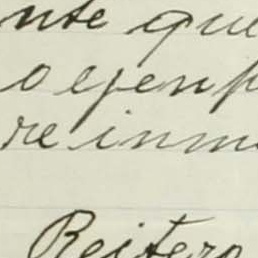 nte que
o ejenp
re inm
Reitero